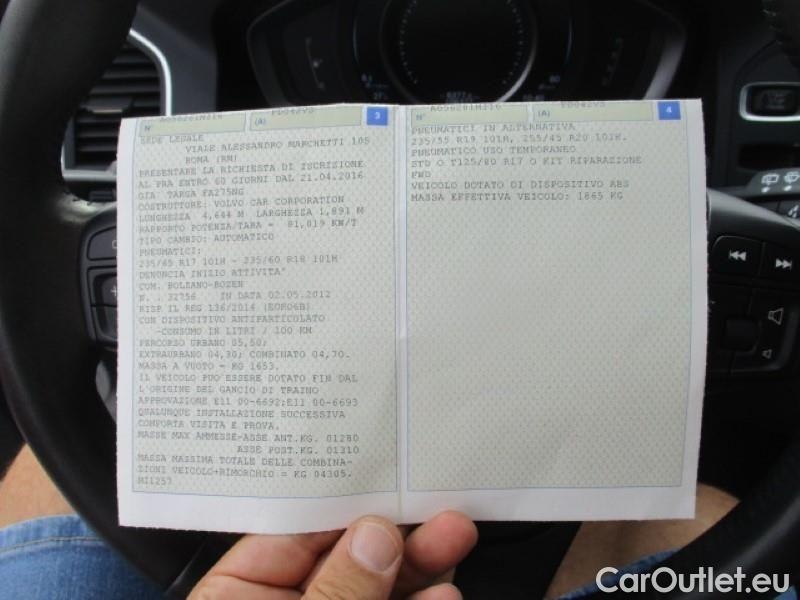 N° A058281M316 (A) FD042VS 3
SEDE LEGALE
VIALE ALESSANDRO MARCHETTI 105
ROMA (RM)
PRESENTARE LA RICHIESTA DI ISCRIZIONE
AL PRA ENTRO 60 GIORNI DAL 21.04.2016
GIA' TARGA FA275NG
COSTRUTTORE: VOLVO CAR CORPORATION
LUNGHEZZA 4,644 M LARGHEZZA 1,891 M
RAPPORTO POTENZA/TARA = 81,019 KW/T
TIPO CAMBIO: AUTOMATICO
PNEUMATICI:
235/65 R17 101H - 235/60 R18 101H
DENUNCIA INIZIO ATTIVITA'
COM. BOLZANO-BOZEN
N. : 32756 IN DATA 02.05.2012
RISP. IL REG 136/2014 (EURO6B)
CON DISPOSITIVO ANTIPARTICOLATO
-CONSUMO IN LITRI / 100 KM
PERCORSO URBANO 05,50;
EXTRAURBANO 04,30; COMBINATO 04,70.
MASSA A VUOTO = KG 1653.
IL VEICOLO PUO' ESSERE DOTATO FIN DAL
L'ORIGINE DEL GANCIO DI TRAINO
APPROVAZIONE E11 00-6692;E11 00-6693
QUALUNQUE INSTALLAZIONE SUCCESSIVA
COMPORTA VISITA E PROVA.
MASSE MAX AMMESSE-ASSE ANT.KG. 01280
ASSE POST.KG. 01310
MASSA MASSIMA TOTALE DELLE COMBINA-
ZIONI VEICOLO+RIMORCHIO = KG 04305.
MI1257
N° A058281M316 (A) FD042VS 4
PNEUMATICI IN ALTERNATIVA
235/55 R19 101H, 255/45 R20 101H.
PNEUMATICO USO TEMPORANEO
STD O T125/80 R17 O KIT RIPARAZIONE
FWD
VEICOLO DOTATO DI DISPOSITIVO ABS
MASSA EFFETTIVA VEICOLO: 1865 KG
CarOutlet.eu